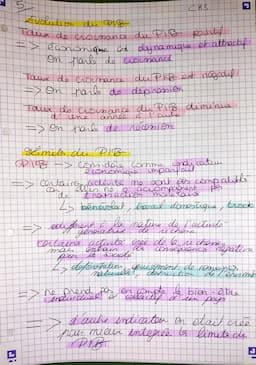 5/
CRS
Evolution du PIB
Taux de croissance du PIB positif
=> économique est dynamique et attractif
On parle de croissance
Taux de croissance du PIB est négatif
=> On parle de dépression
Taux de croissance du PIB diminue
d'une année à l'autre
=> On parle de récession
Limites du PIB
(PIB) -> Considéré comme indicateur
économique important
=> certaines activités ne sont pas comptabilisés
car elles ne s'accompagnent pas
de transaction
↳ bénévolat, travail domestique, troc
=> la nature de l'activité
richesse
certaines activités créé de la richesse
mais des conséquences négatives
pour la société
↳ déforestation, épuisement de ressources
naturelles, destruction de l'environ
=> ne prend pas en compte le bien-être
individuel et collectif d'un pays
=> d'autre indicateur on était créé
pour mieux intégrer les limites du
(PIB)